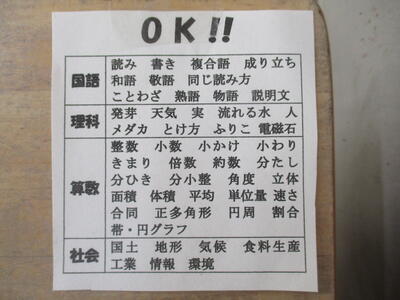 OK!!
国語
読み 書き 複合語 成り立ち
和語 敬語 同じ読み方
ことわざ 熟語 物語 説明文
理科
発芽 天気 実 流れる水 人
メダカ とけ方 ふりこ 電磁石
算数
整数 小数 小かけ 小わり
きまり 倍数 約数 分たし
分ひき 分小整 角度 立体
面積 体積 平均 単位量 速さ
合同 正多角形 円周 割合
帯・円グラフ
社会
国土 地形 気候 食料生産
工業 情報 環境